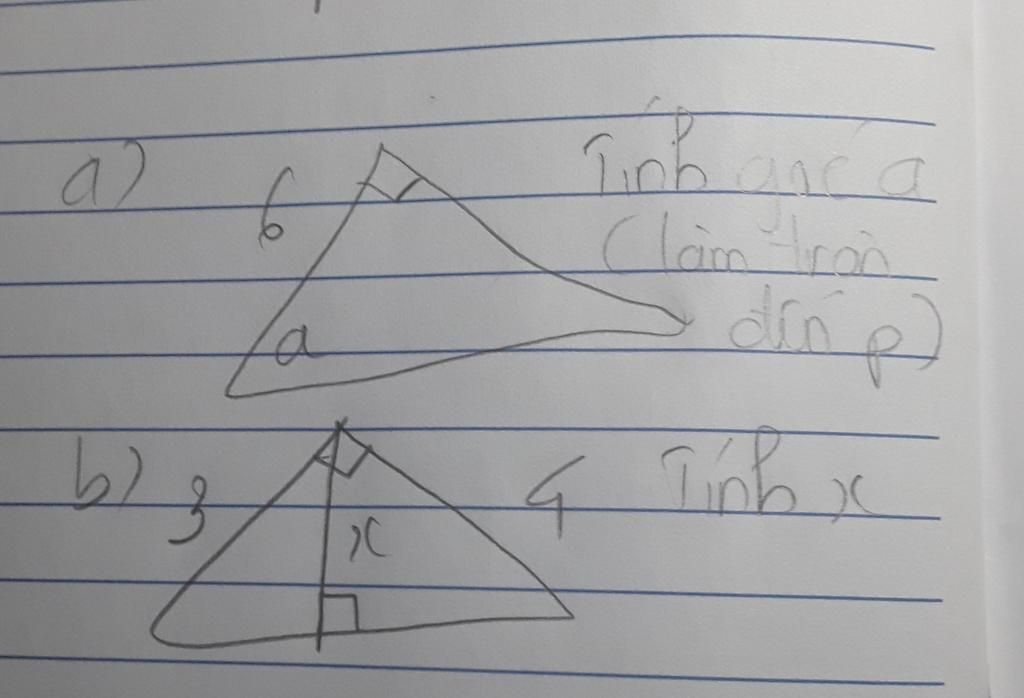 a) 6 Tính góc a
(làm tròn
a đến p)
b) 3 4 Tính x
x